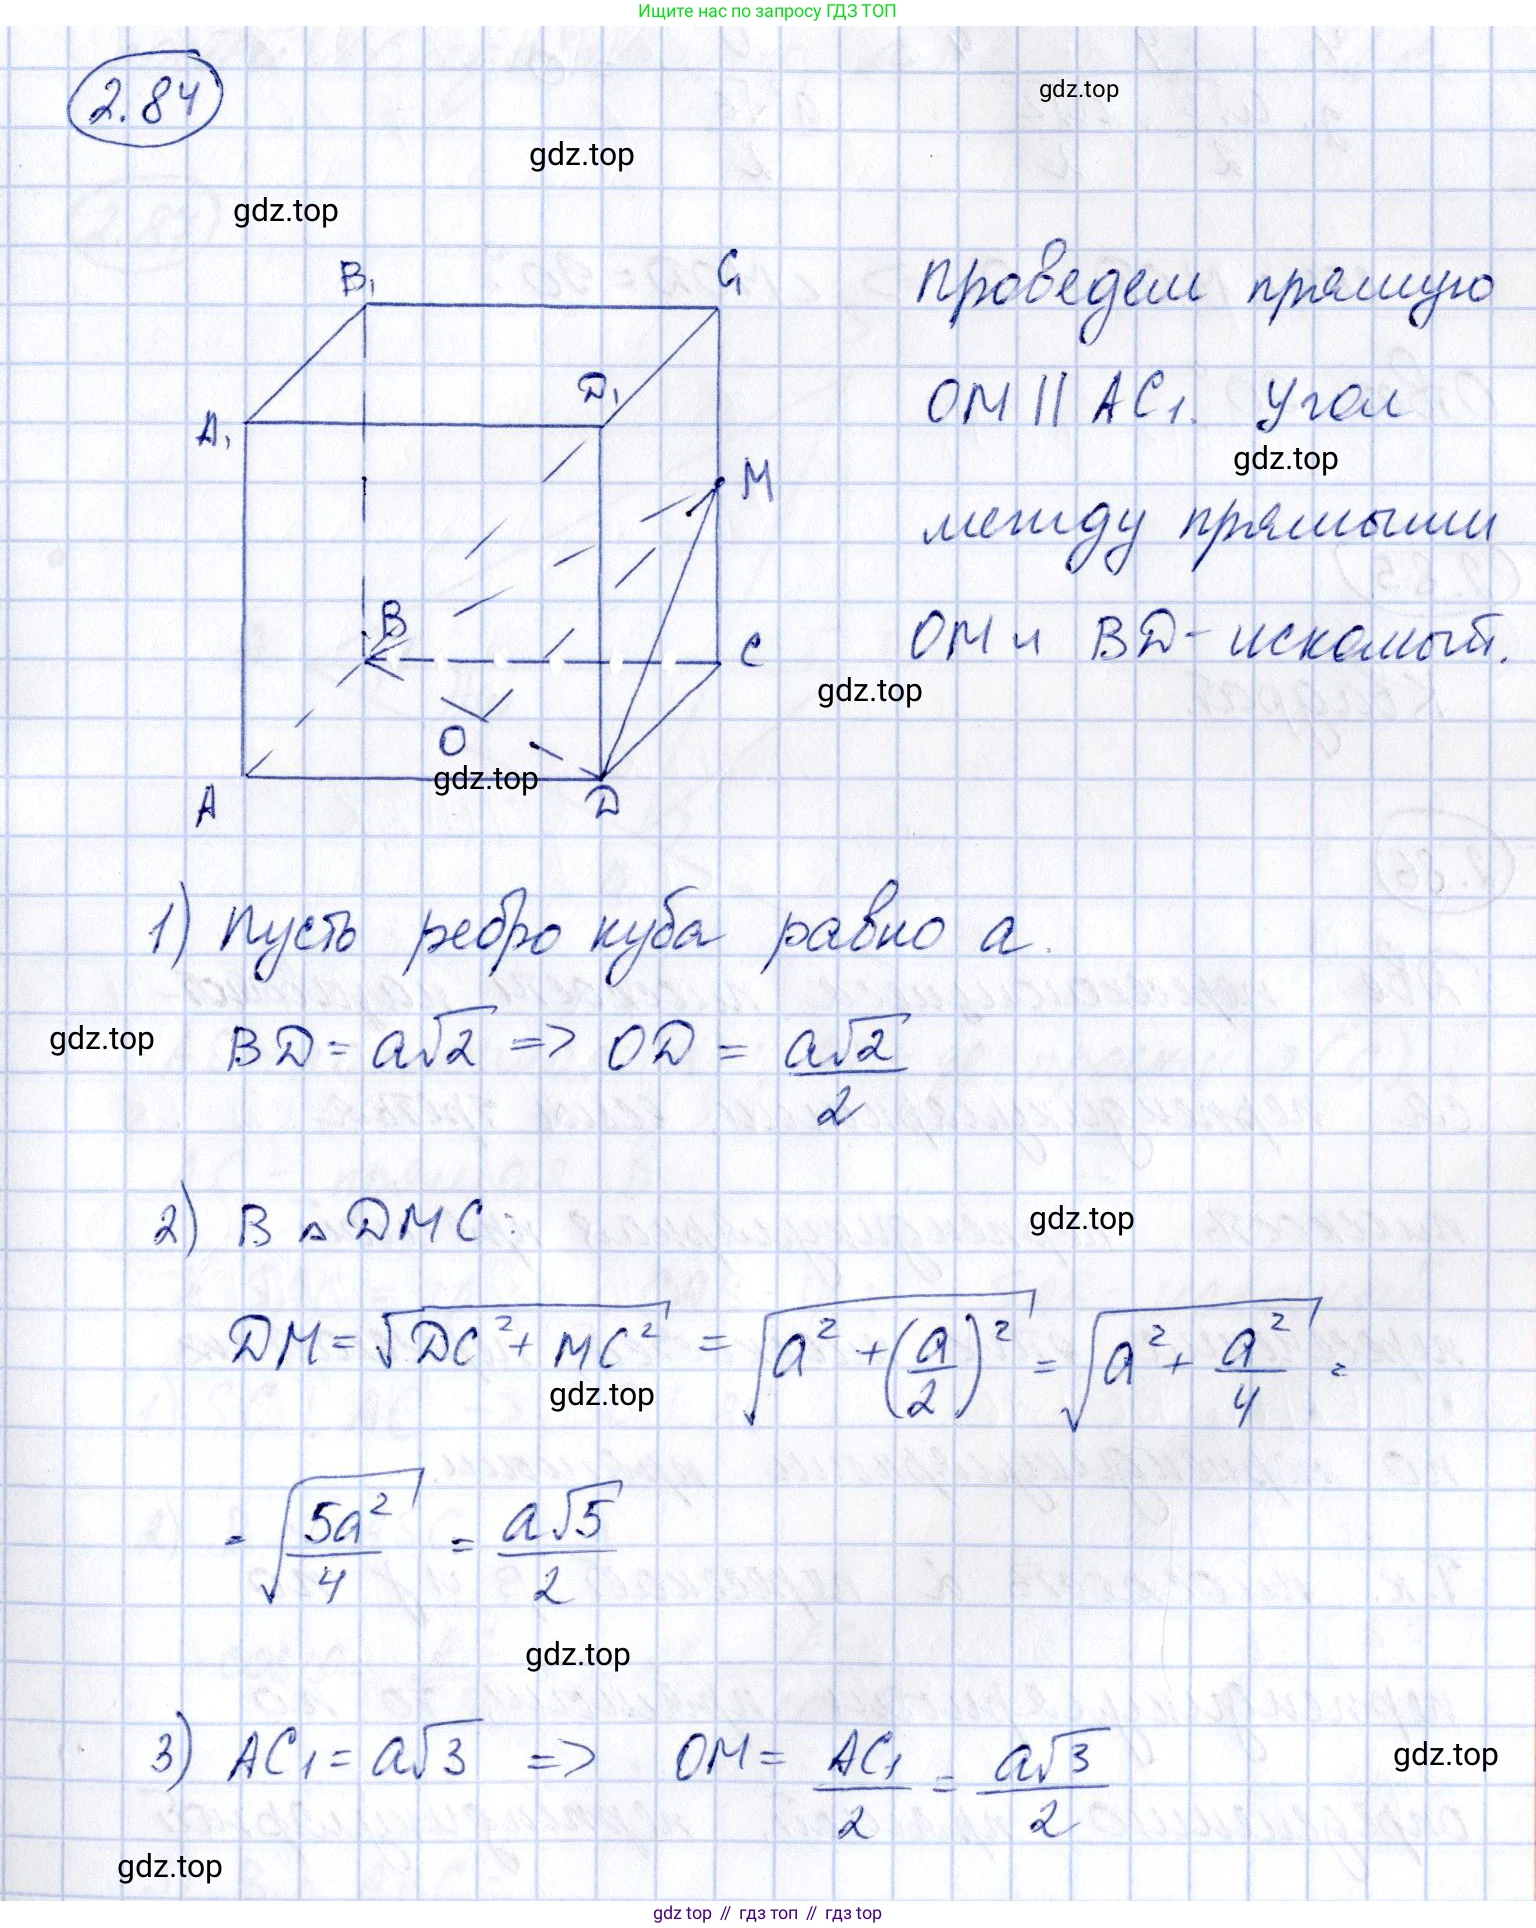 Ищите нас по запросу ГДЗ ТОП
2.84
gdz.top
gdz.top
gdz.top
B₁
C₁
Проведем прямую
A₁
D₁
OM || AC₁. Угол
gdz.top
M
между прямыми
B
C
OM и BD - искомый.
gdz.top
O
gdz.top
A
D
1) Пусть ребро куба равно a.
gdz.top
BD = a√2 => OD = a√2/2
2) В △ DMC:
gdz.top
DM = √(DC² + MC²) = √(a² + (a/2)²) = √(a² + a²/4) =
gdz.top
= √(5a²/4) = a√5/2
gdz.top
3) AC₁ = a√3 => OM = AC₁/2 = a√3/2
gdz.top
gdz.top
gdz top // гдз топ // гдз top